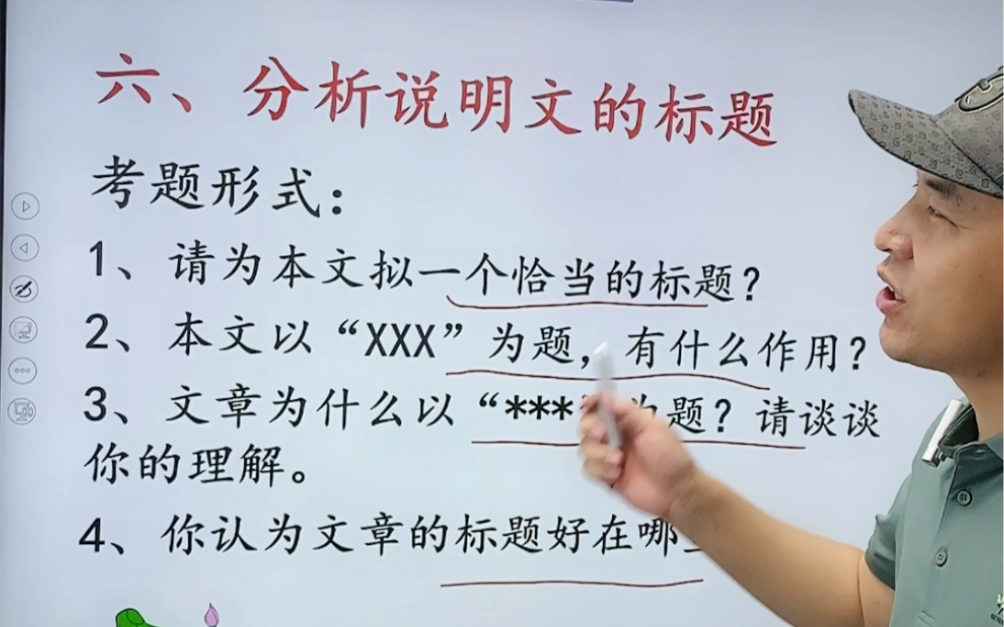 六、分析说明文的标题
考题形式：
1、请为本文拟一个恰当的标题？
2、本文以“XXX”为题，有什么作用？
3、文章为什么以“***”为题？请谈谈
你的理解。
4、你认为文章的标题好在哪